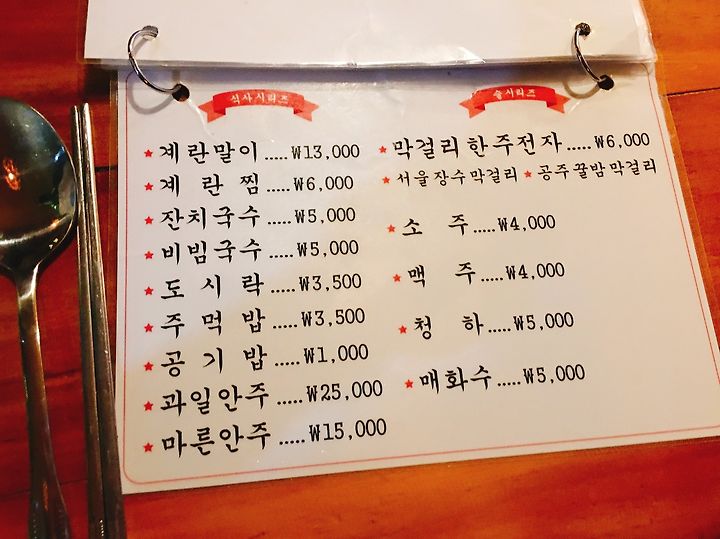 식사시리즈
★계란말이.....₩13,000
★계란찜.....₩6,000
★잔치국수.....₩5,000
★비빔국수.....₩5,000
★도시락.....₩3,500
★주먹밥.....₩3,500
★공기밥.....₩1,000
★과일안주.....₩25,000
★마른안주.....₩15,000
술시리즈
★막걸리한주전자.....₩6,000
★서울장수막걸리 ★공주꿀밤막걸리
★소주.....₩4,000
★맥주.....₩4,000
★청하.....₩5,000
★매화수.....₩5,000